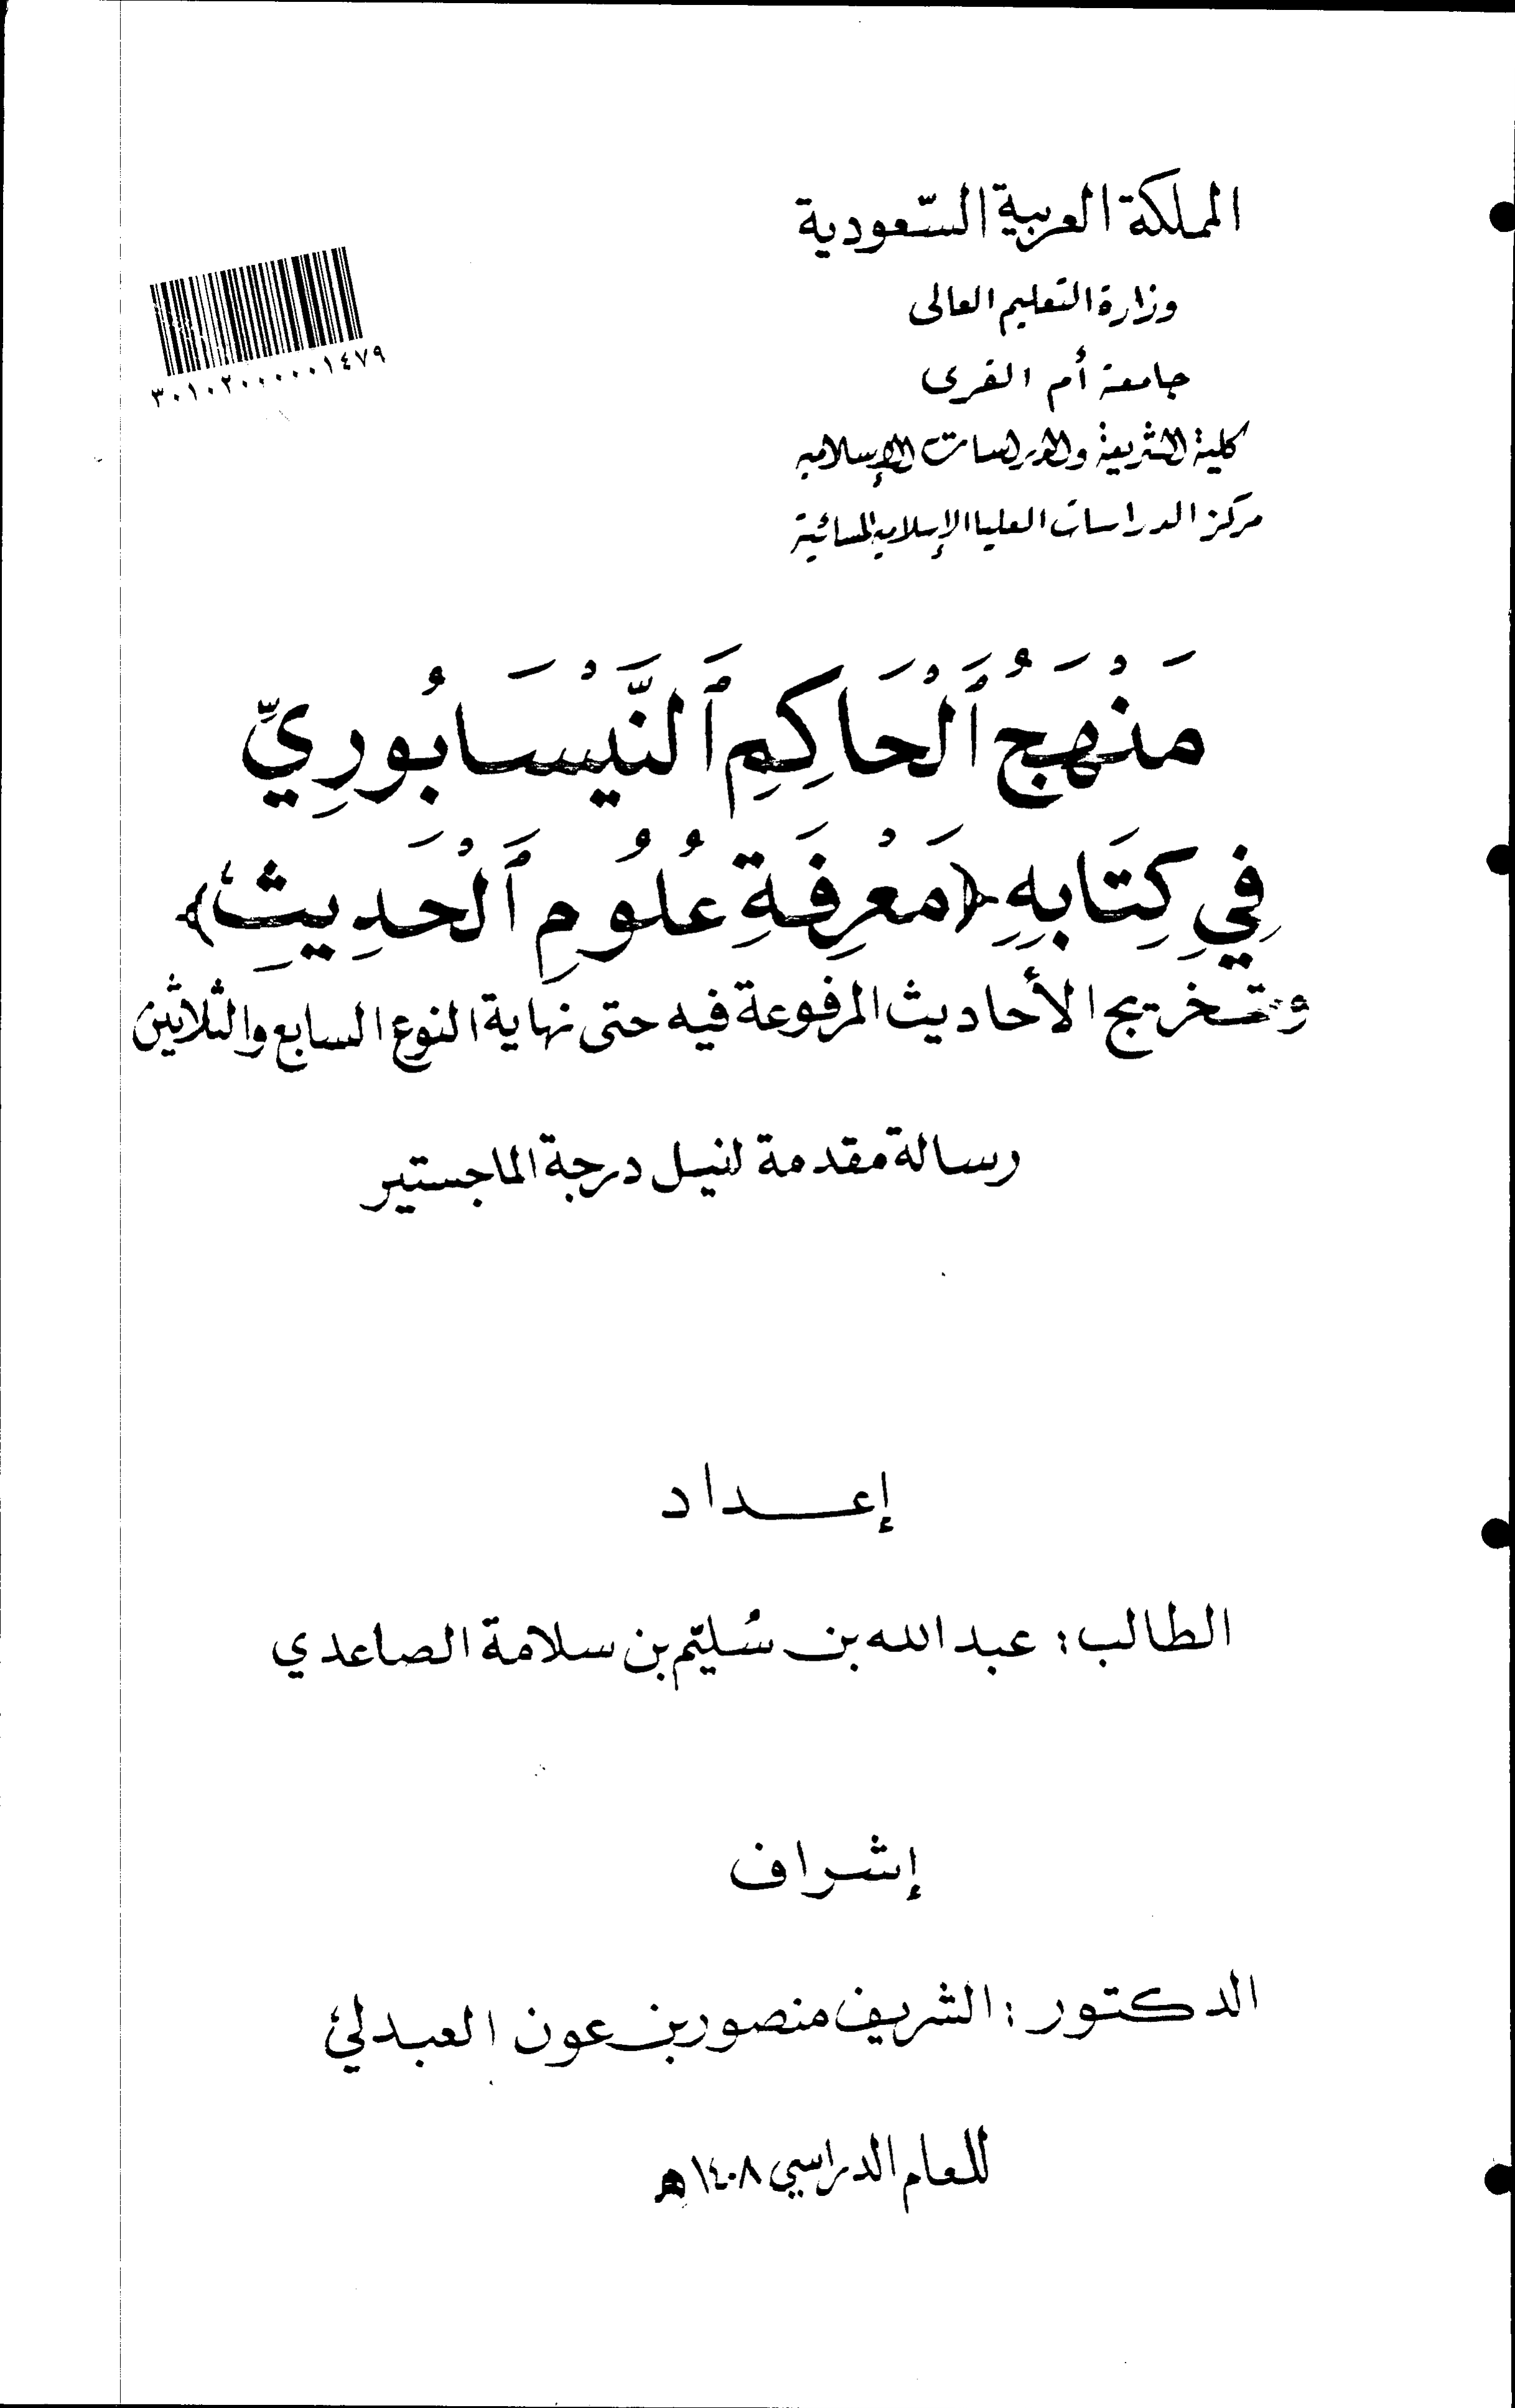 المملكة العربية السّعودية
وزارة التعليم العالى
جامعة أم القرى
كلية الشريعة والدراسات الإسلامية
مركز الدراسات العليا الإسلامية المسائية
٣٠١٠٢٠٠٠٠٠١٤٧٩
مَنْهَجُ ٱلْحَاكِمِ ٱلنَّيْسَابُورِيِّ
فِي كِتَابِهِ ﴿مَعْرِفَةِ عُلُومِ ٱلْحَدِيثِ﴾
وتخريج الأحاديث المرفوعة فيه حتى نهاية النوع السابع والثلاثين
رسالة مقدمة لنيل درجة الماجستير
إعداد
الطالب: عبدالله بن سُليّم بن سلامة الصاعدي
إشراف
الدكتور: الشريف منصور بن عون العبدلي
للعام الدراسي ١٤٠٨هـ